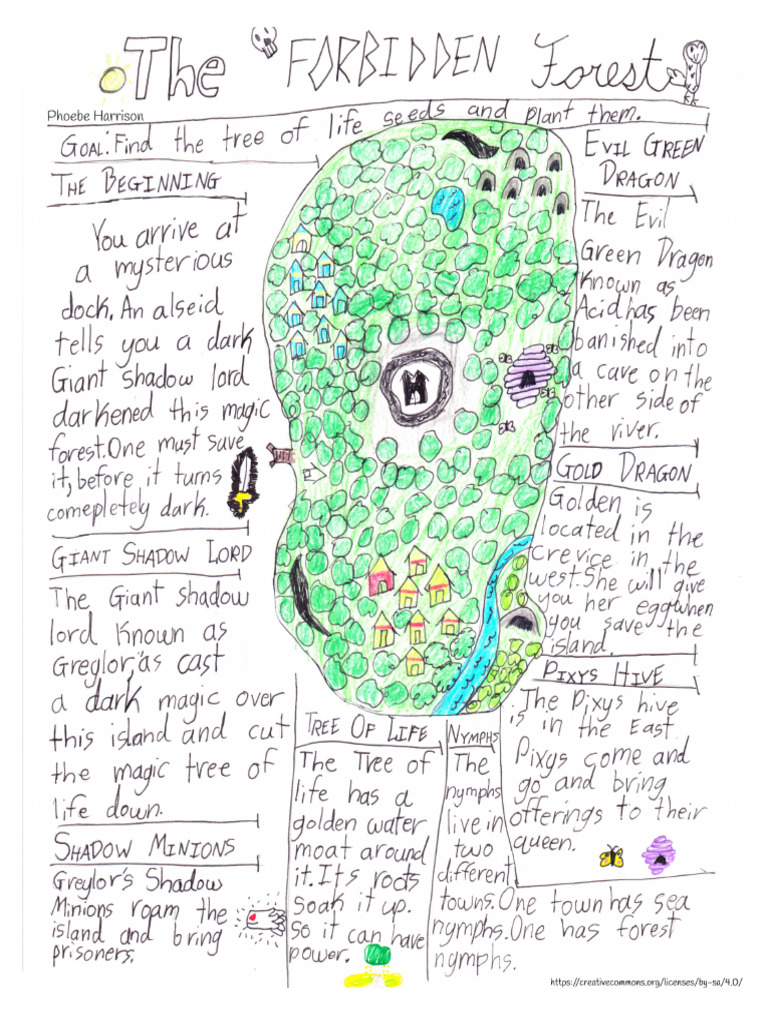 The FORBIDDEN Forest
Phoebe Harrison
GOAL: Find the tree of life seeds and plant them.
THE BEGINNING
You arrive at
a mysterious
dock. An alseid
tells you a dark
Giant shadow lord
darkened this magic
forest. One must save
it, before it turns
comepletely dark.
GIANT SHADOW LORD
The Giant shadow
lord known as
Greglor, as cast
a dark magic over
this island and cut
the magic tree of
life down.
SHADOW MINIONS
Greylor's Shadow
Minions roam the
island and bring
prisoners.
TREE OF LIFE
The Tree of
life has a
golden water
moat around
it. Its roots
soak it up.
so it can have
power.
NYMPHS
The
nymphs
live in
two
different
towns. One town has sea
nymphs. One has forest
nymphs.
EVIL GREEN
DRAGON
The Evil
Green Dragon
known as
Acid has been
banished into
a cave on the
other side of
the river.
GOLD DRAGON
Golden is
located in the
crevice in the
west. She will give
you her egg when
you save the
island.
PIXYS HIVE
The Pixys hive
is in the East
Pixys come and
go and bring
offerings to their
queen.
https://creativecommons.org/licenses/by-sa/4.0/